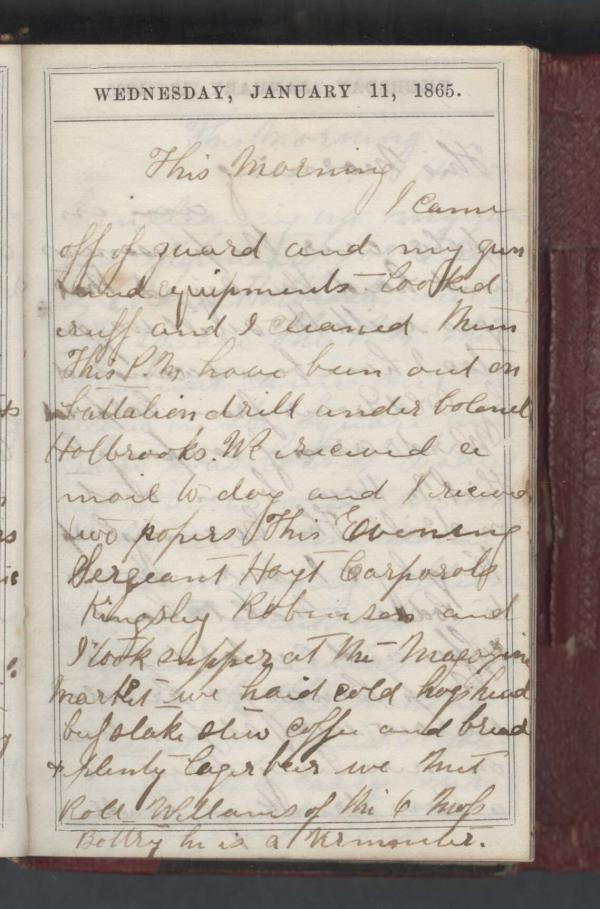 WEDNESDAY, JANUARY 11, 1865.
This Morning
I came
off of guard and my gun
and equipments looked
ruff and I cleaned them
This P.M. have been out on
battalion drill under Colonel
Holbrooks. We received a
mail to day and I received
two papers This Evening
Sergeant Hoyt Corporals
Kingsley Robinson and
I took supper at the Magazine
Market we haid cold hogshead
beefstake stew coffee and bread
& plenty lager beer we met
Williams of the 6 Mass
Battry he is a Vrmonter.